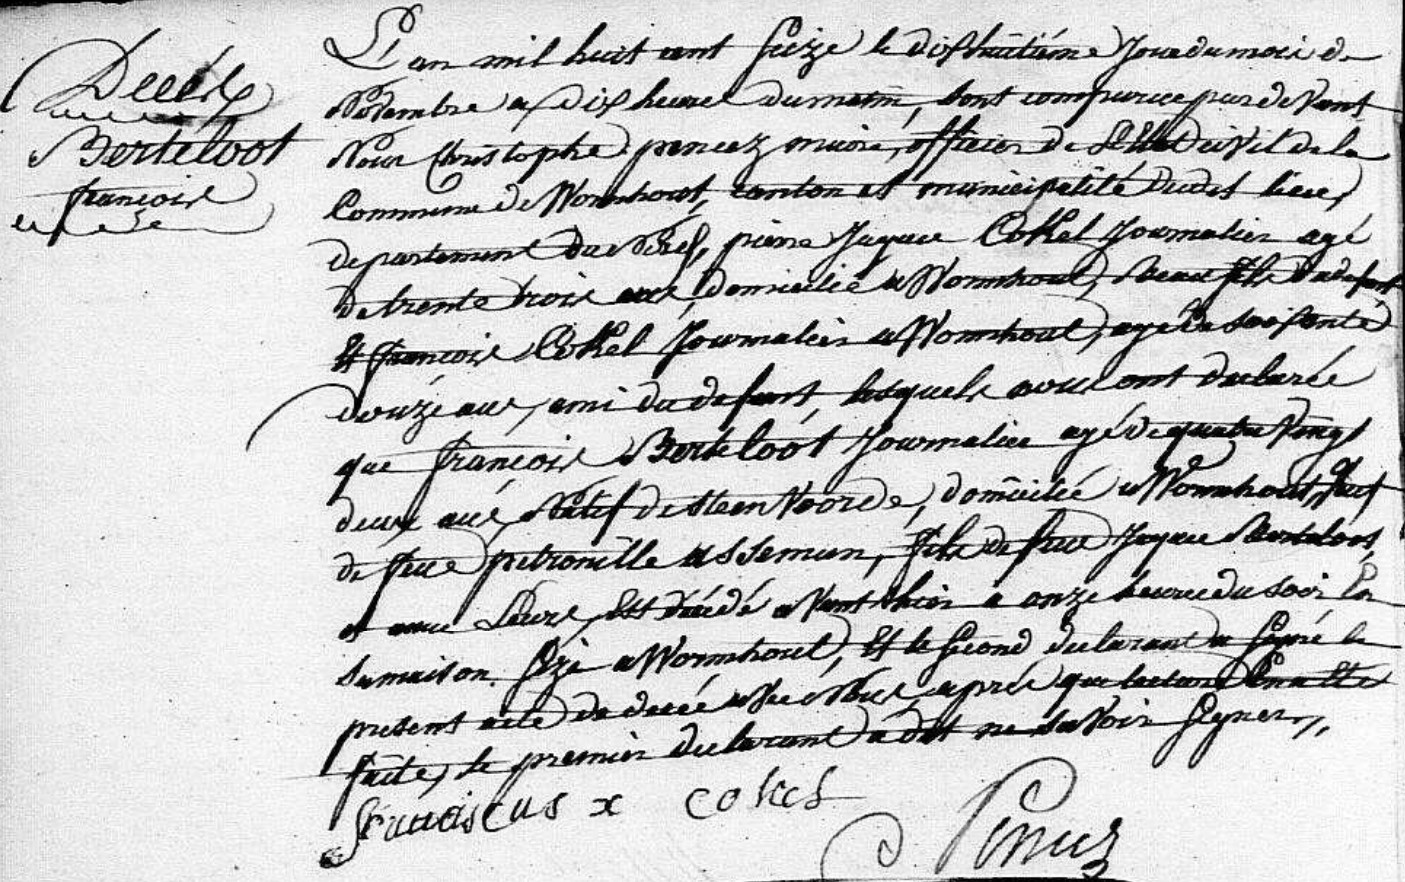 Décès
Berteloot
françois
L'an mil huit cent seize le dixhuitième Jour du mois de
à dix heures du matin, sont comparus pardevant
Nous Christophe penez maire, officier de L'Etat Civil de la
Commune de Wormhout, canton et municipalité dudit lieu,
departement du Nord, pierre Jaques Cokel Journalier agé
de trente trois ans, domicilié a Wormhout, beau fils du defunt
Et françois Cokel Journalier a Wormhout, agé de soixante
douze ans, ami du defunt, lesquels nous ont declarée
que françois Berteloot Journalier agé de quatre Vingt
deux ans, Natif de SteenVoorde, domicilié a Wormhout, Veuf
de feue petronille assemun, fils de feu Jaques Berteloot,
et est décédé avant hier a onze heures du soir En
sa maison, size a Wormhout, Et le second declarant a signé le
present acte de decés avec Nous, après que lecture En a été
faite, le premier declarant a dit ne savoir signer,,
franciscus x cokel
Penez